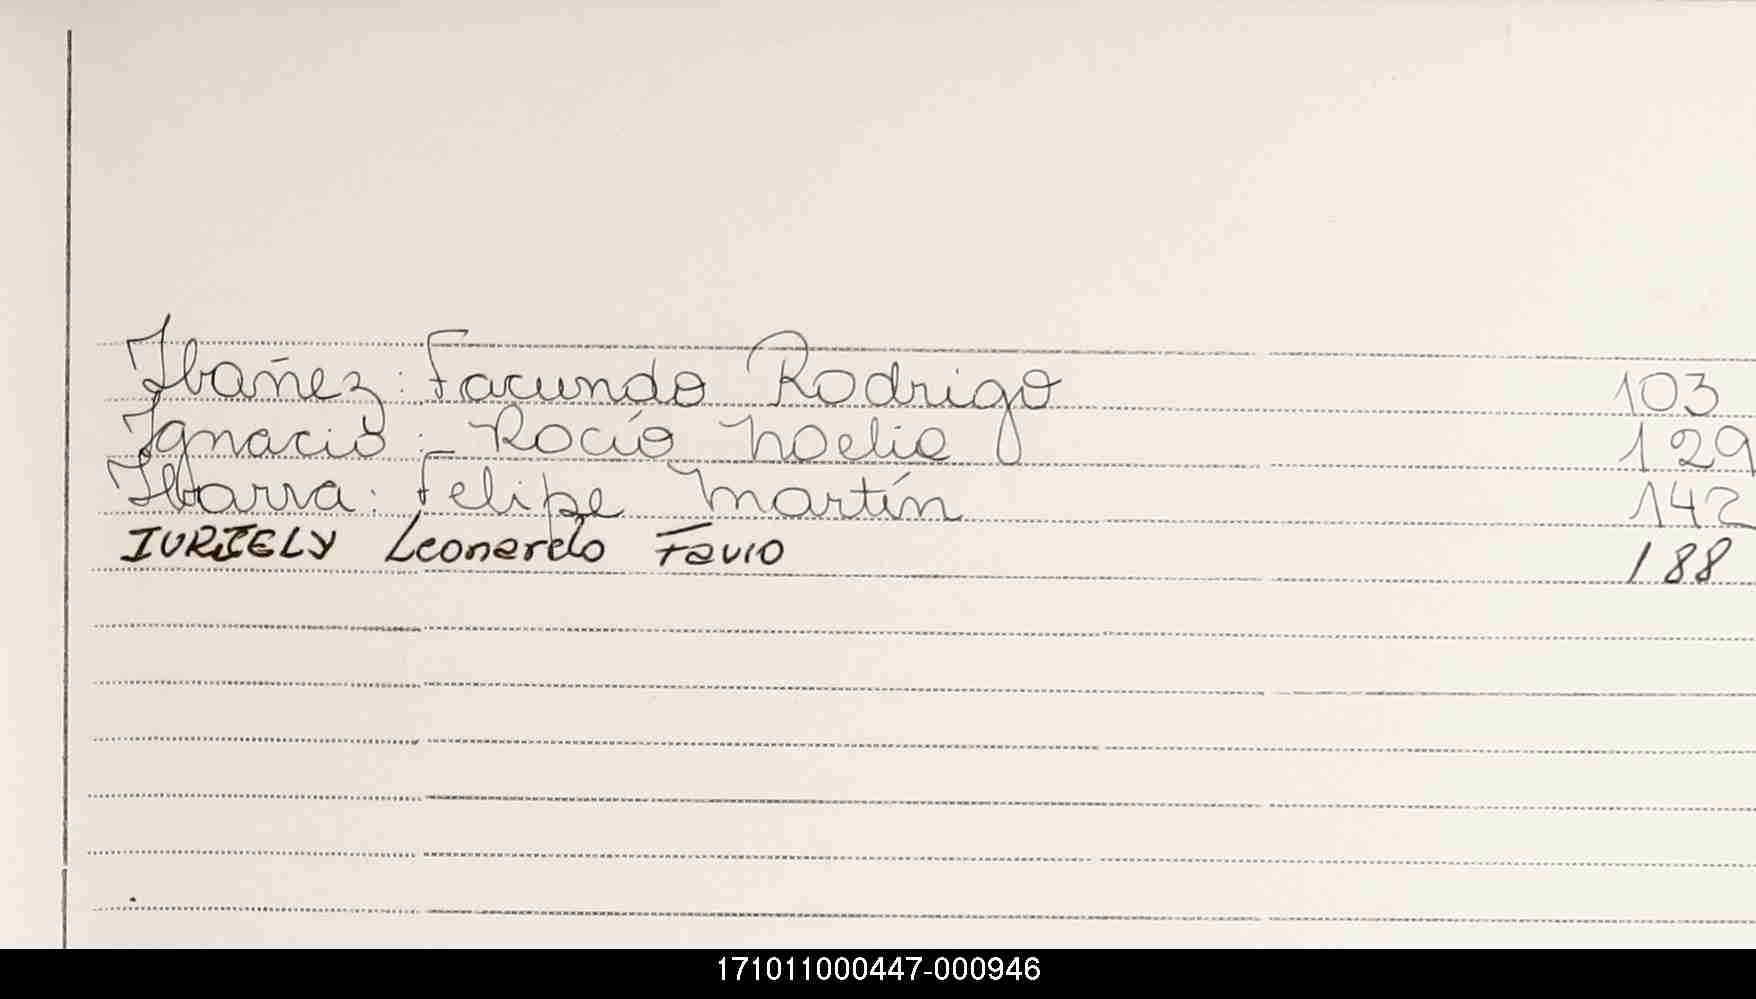 Ibañez: Facundo Rodrigo 103
Ignacio: Rocío Noelia 129
Ibarra: Felipe Martín 142
Leonardo Favio 188
171011000447-000946